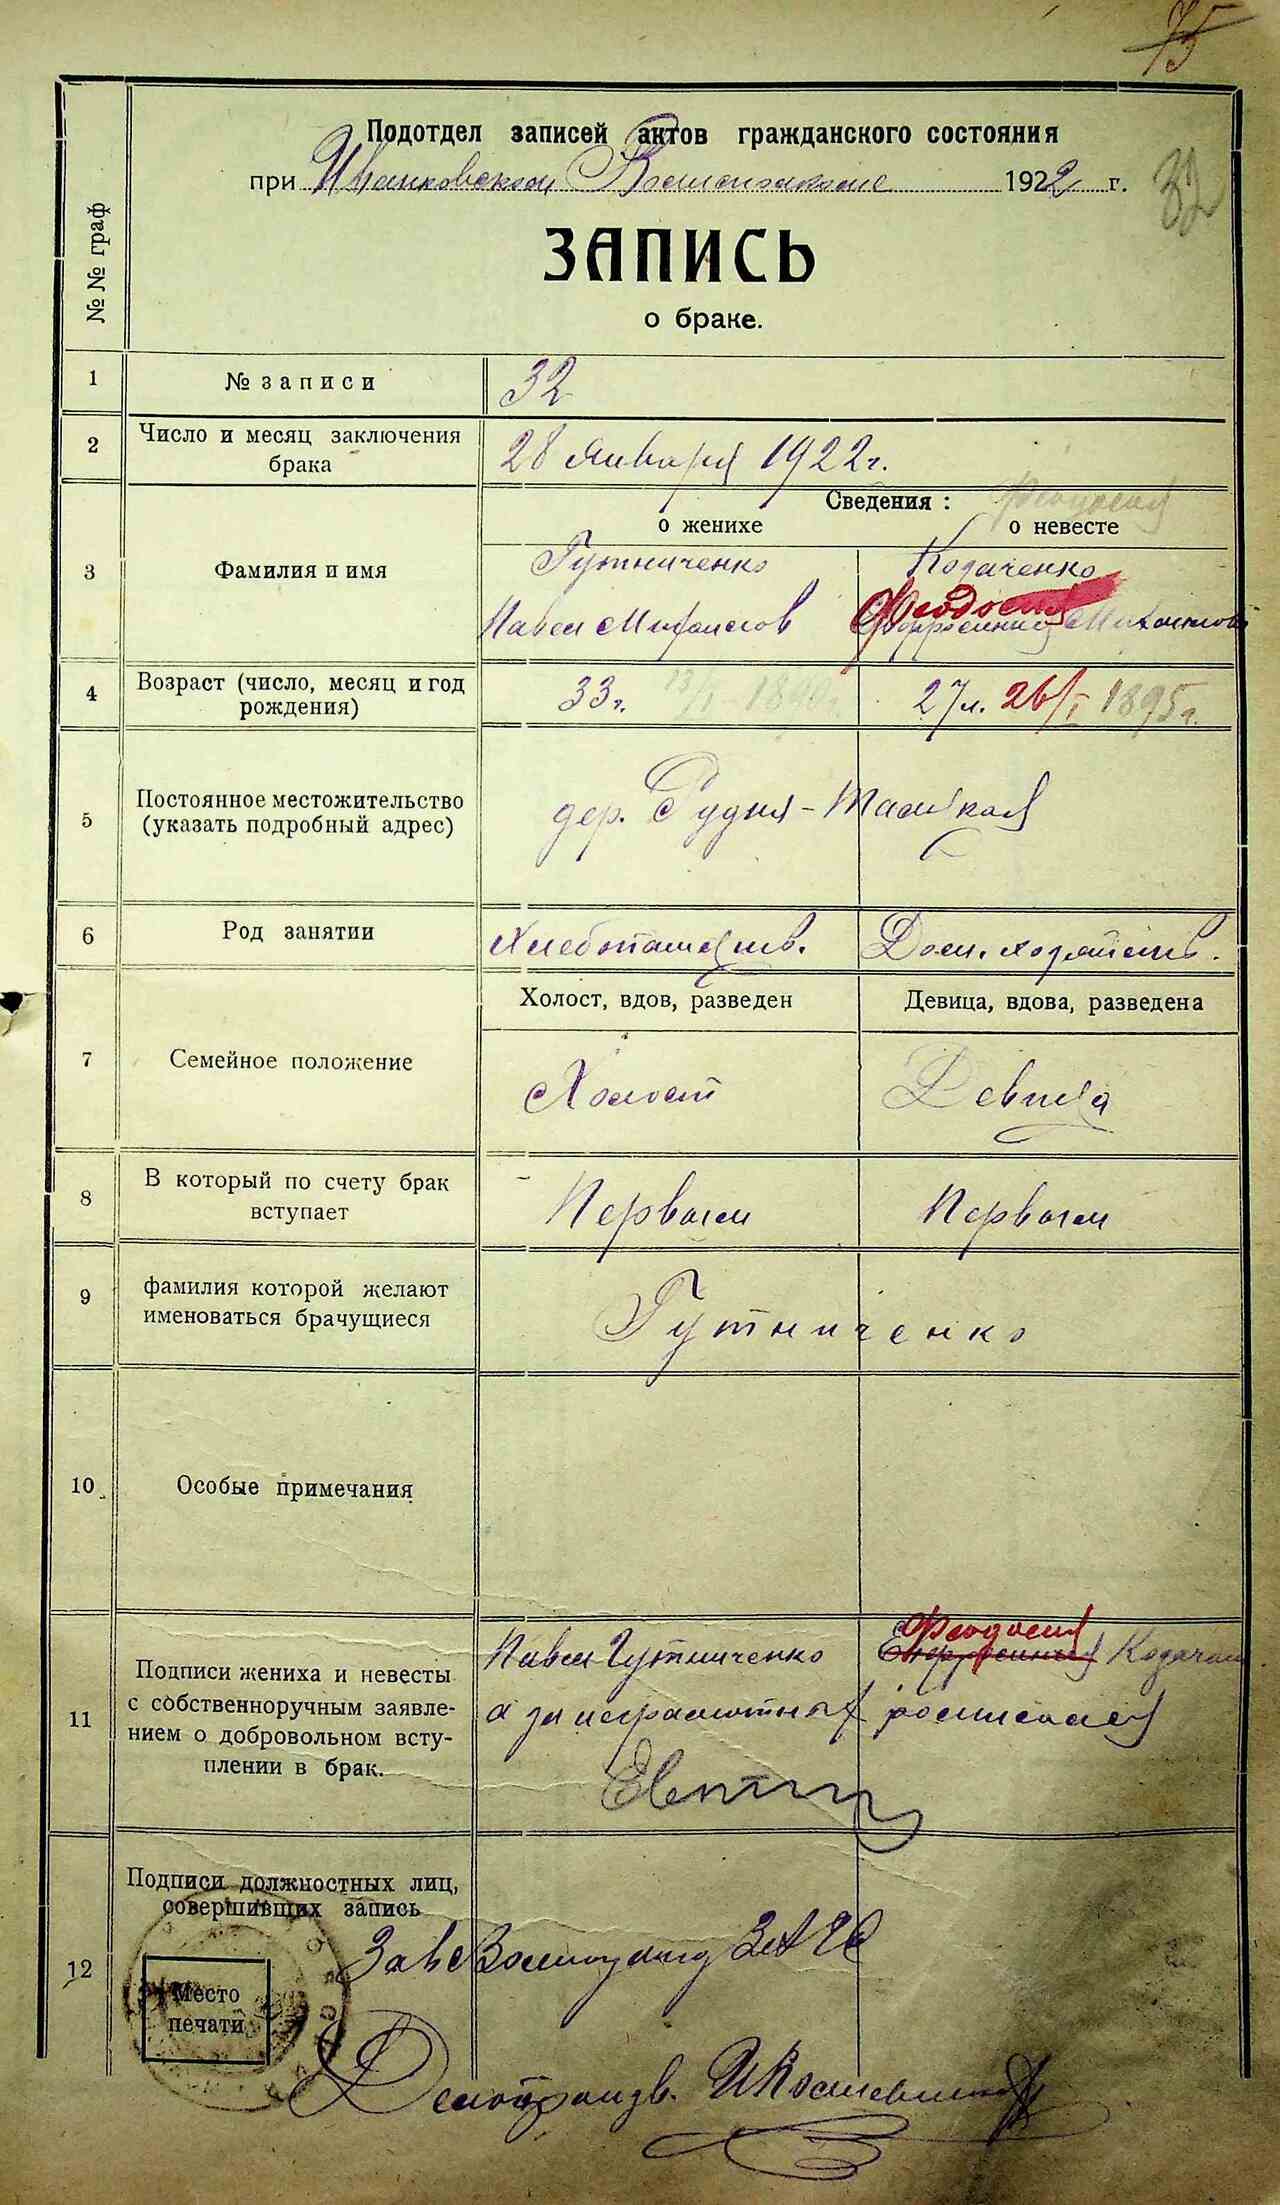 75
Подотдел записей актов гражданского состояния
при Иванковском Волисполкоме 1922 г.
32
№ № граф
ЗАПИСЬ
о браке.
1 № записи 32
2 Число и месяц заключения брака 28 января 1922 г.
Сведения: Феодосия
о женихе о невесте
3 Фамилия и имя Гутниченко Козаченко
Павел Михайлов Феодосия Михайлова
4 Возраст (число, месяц и год рождения) 33 г. 27 л. 26/I 1895 г.
5 Постоянное местожительство (указать подробный адрес) дер. Рудня-Талская
6 Род занятии Хлебопашество. Дом. хозяйств.
Холост, вдов, разведен Девица, вдова, разведена
7 Семейное положение Холост Девица
8 В который по счету брак вступает Первым Первым
9 фамилия которой желают именоваться брачущиеся Гутниченко
10 Особые примечания
11 Подписи жениха и невесты с собственноручным заявлением о добровольном вступлении в брак.
Павел Гутниченко Феодосия Козачен
а за неграмотных росписался
12 Подписи должностных лиц, совершивших запись
Место печати
Делопроизв.